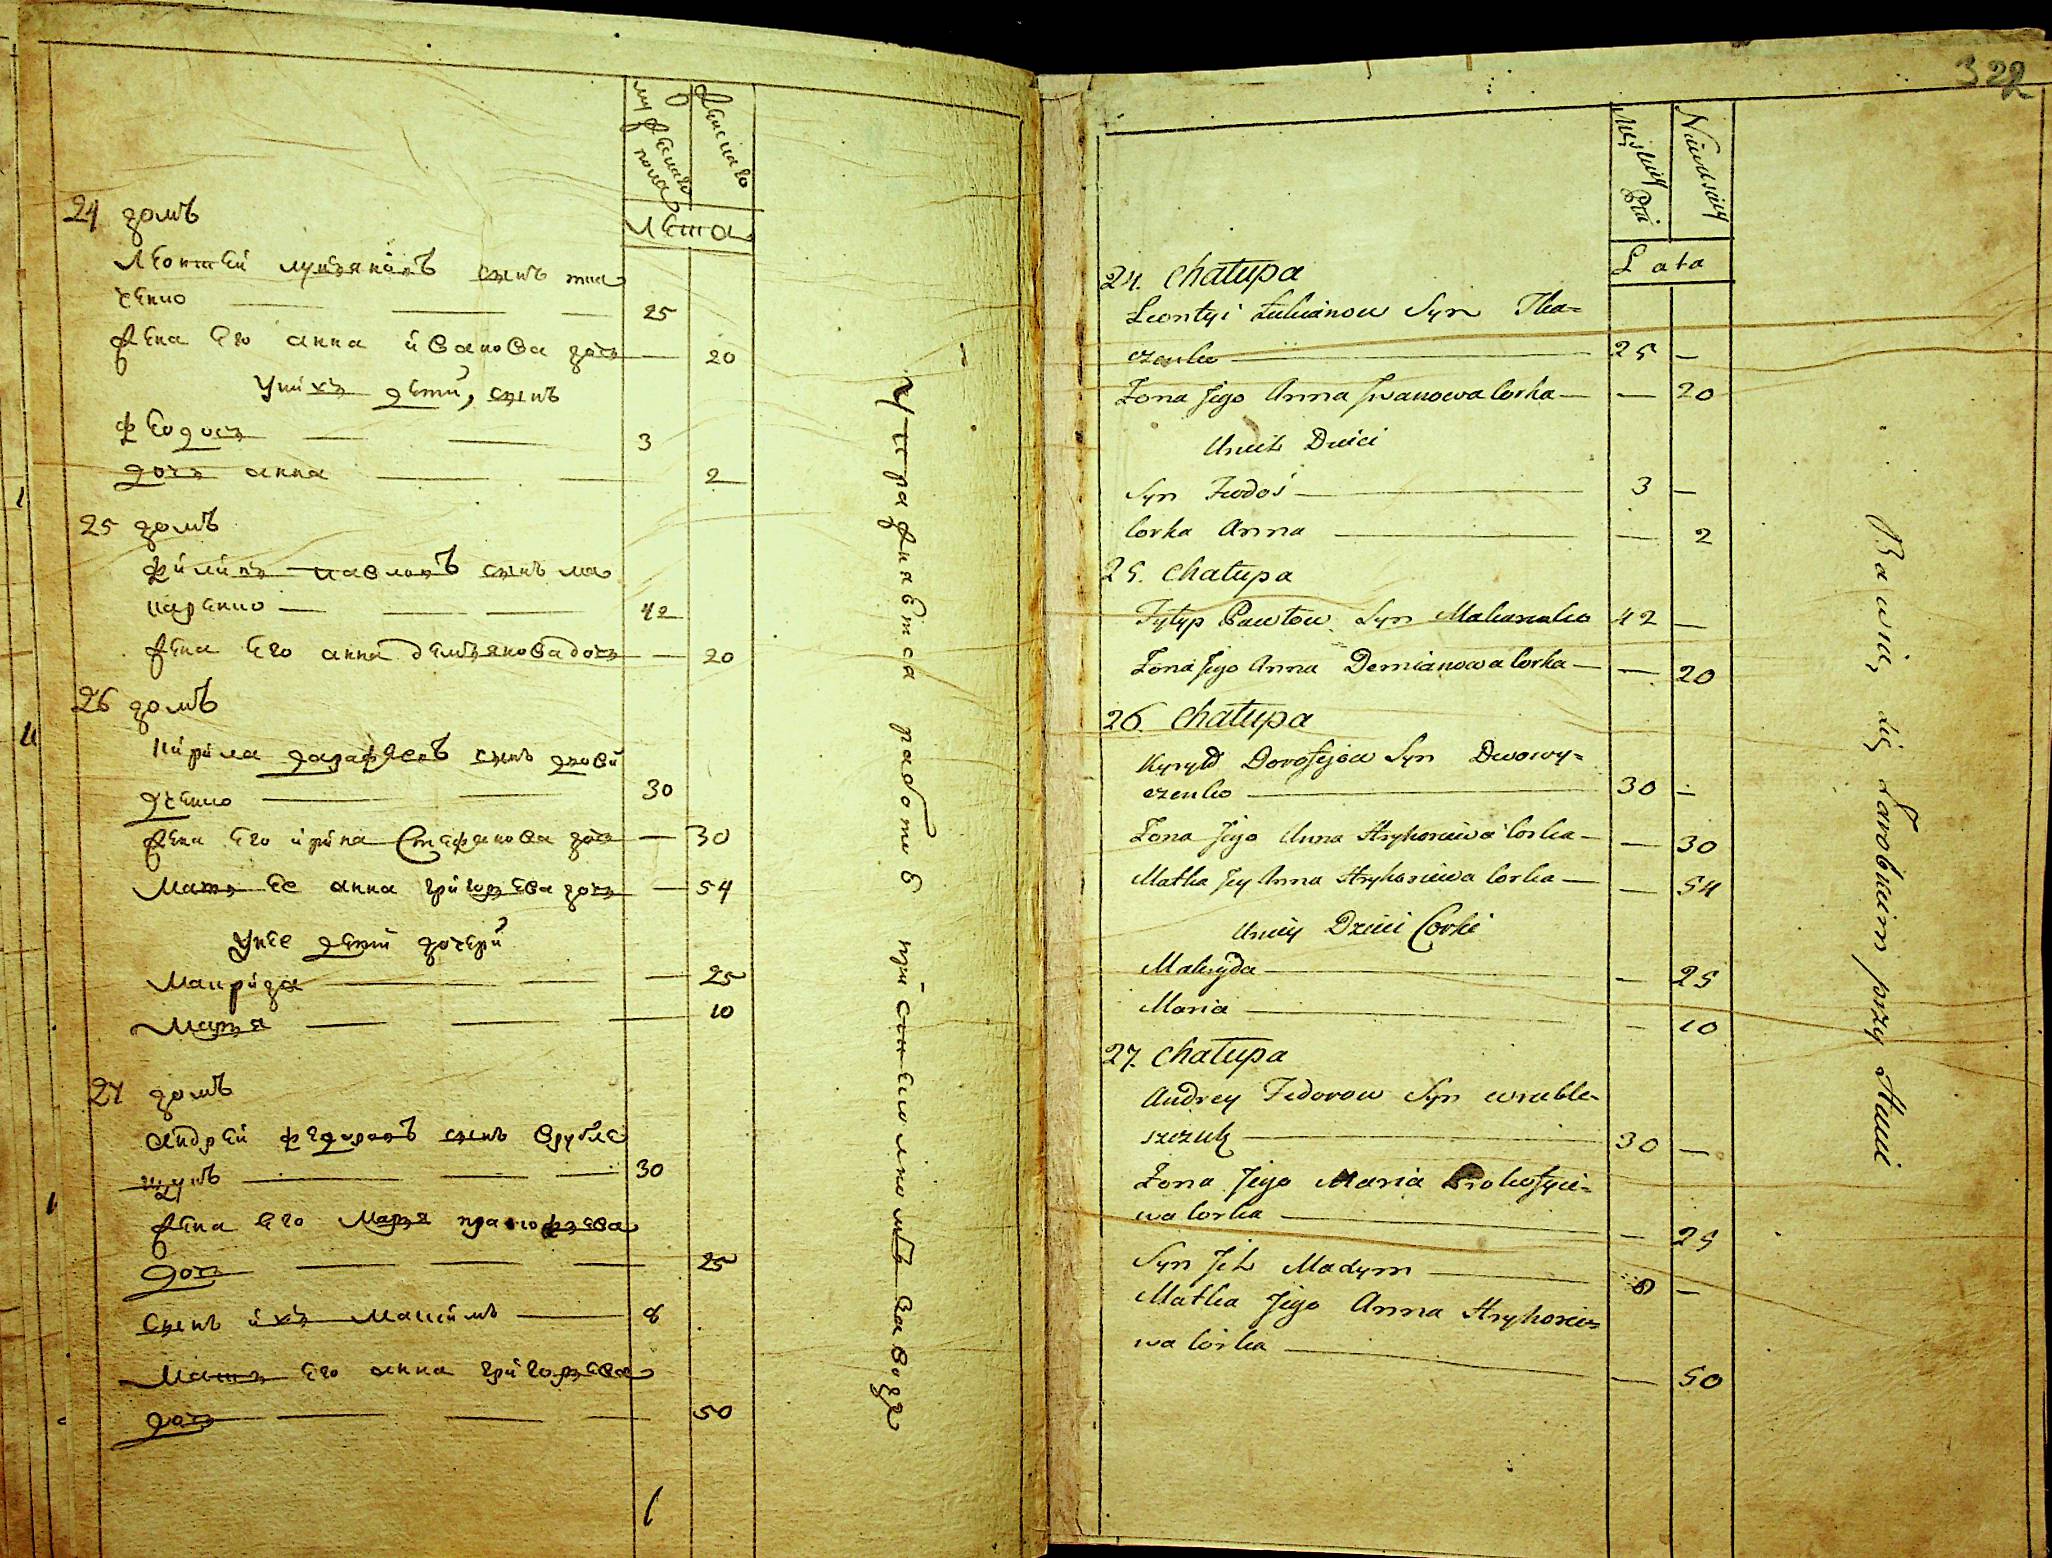 мужеска пола
женскаго
лета
24 домъ
Леонтей лукьяновъ сынъ тка
ченко 25
жена его анна иванова дочь 20
Уних дети, сынъ
Феодось 3
дочь анна 2
25 домъ
филипъ павловъ сынъ ма
каренко 42
жена его анна демьянова дочь 20
26 домъ
кирила дарафеевъ сынъ
30
жена его ирина Стефанова дочь 30
Мать ее анна григорьева дочь 54
Унее детей дочери
Мак­рида 25
Марья 10
27 домъ
андрей федоровъ сынъ врубле
30
жена его Марья пракофьева
дочь 25
сынъ ихъ Максимъ 8
Мать его анна григорьева
дочь 50
упражняется работою при заводе
322
Męzkiey Płci
Niewieściey
Lata
24. Chałupa
Leontyi Łukianow Syn Tka=
czenko 25 —
Żona Jego Anna Jwanowa Corka — 20
Unich Dzieci
Syn Fedoś 3 —
Corka Anna — 2
25. Chałupa
Fyłyp Pawłow Syn Makarenko 42 —
Żona Jego Anna Demianowa Corka — 20
26. Chałupa
Kyryło Dorofejow Syn Dwowy=
czenko 30 —
Żona Jego Anna Hryhoriewa Corka — 30
Matka Jey Anna Hryhoriewa Corka — 54
Uniey Dzieci Corki
Makryda — 25
Maria — 10
27. Chałupa
Andrey Fedorow Syn wruble=
szczuk 30 —
Żona Jego Maria Prokofyie=
wa Corka — 25
Syn Jch Madym 8 —
Matka Jego Anna Hryhorie=
wa Corka — 50
Bawią się Zarobkiem przy Hucie